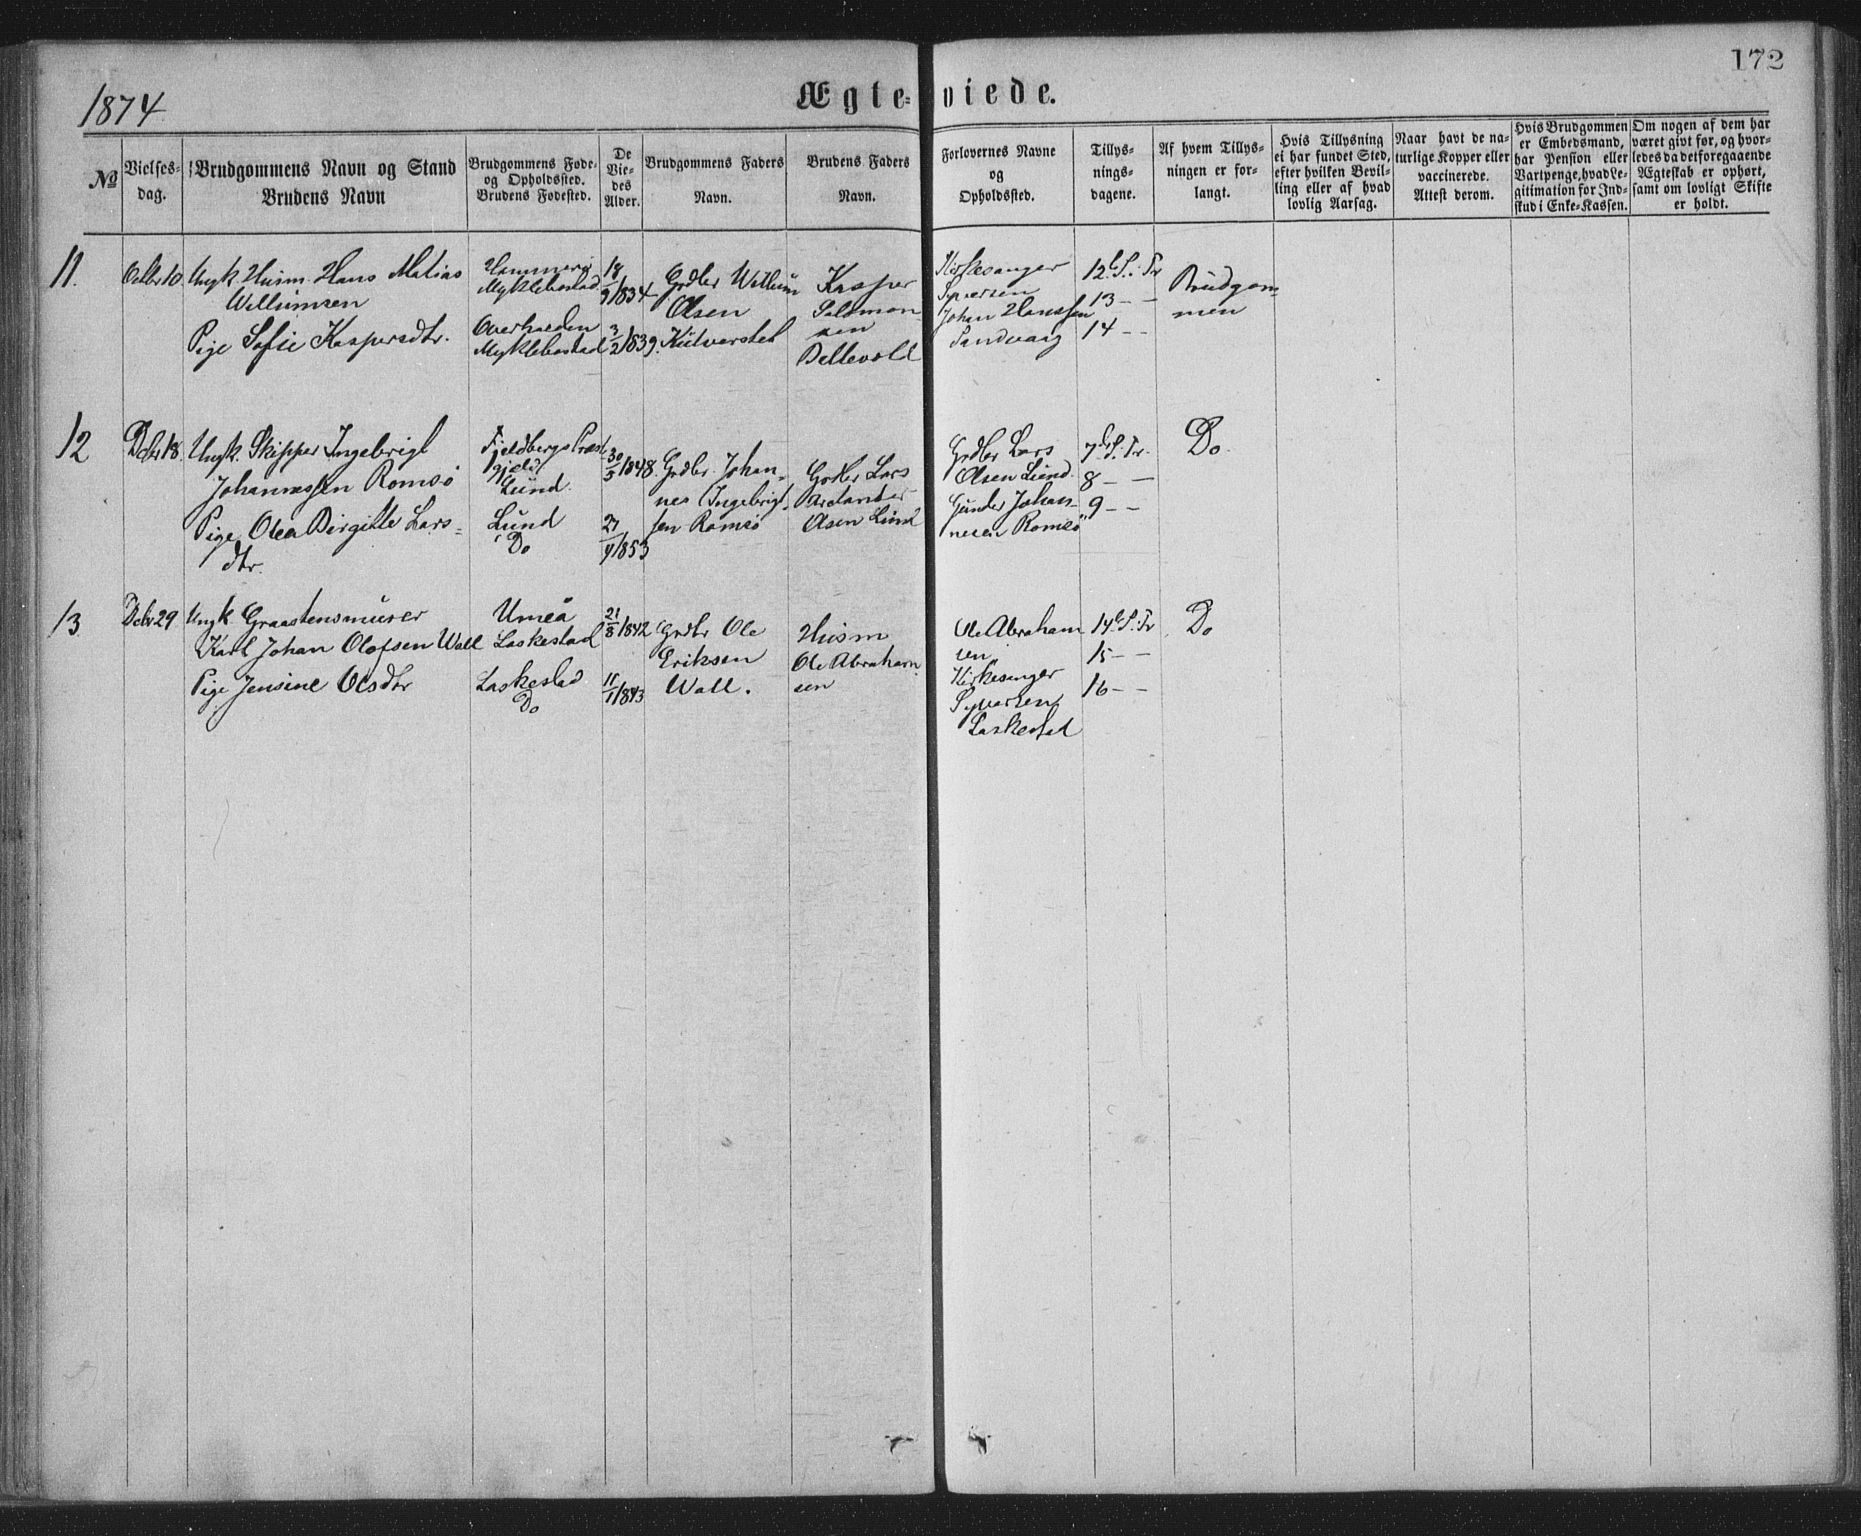 172
1874
Ægte-viede.
№
Vielses-
dag.
Brudgommens Navn og Stand
Brudens Navn
Brudgommens Føde-
og Opholdssted.
Brudens Fødested.
De
Vie-
des
Alder.
Brudgommens Faders
Navn.
Brudens Faders
Navn.
Forlovernes Navne
og
Opholdssted.
Tillys-
nings-
dagene.
Af hvem Tillys-
ningen er for-
langt.
Hvis Tillysning
ei har fundet Sted,
efter hvilken Bevil-
ling eller af hvad
lovlig Aarsag.
Naar havt de na-
turlige Kopper eller
vaccinerede.
Attest derom.
Hvis Brudgommen
er Embedsmand,
har Pension eller
Vartpenge, hvad Le-
gitimation for Ind-
skud i Enke-Kassen.
Om nogen af dem har
været givt før, og hvor-
ledes da det foregaaende
Ægteskab er ophørt,
samt om lovligt Skifte
er holdt.
11.
Octbr 10
Ungk. Husm. Hans Matias
Willumsen
Pige Sofie Kaspersdtr.
Hammerø
Myklebostad
Myklebostad
18/9 1834
3/2 1839.
Grdbr Willum
Olsen
Kasper
Salomon-
sen
Kirkesanger
Syversen
Johan Hanssen
Sandvaag
12te S. i Tr
13 — —
14 — —
Brudgom-
men
12
Dcbr 18.
Ungk. Skipper Ingebrigt
Johannessen Romsö
Pige Olea Birgitte Lars-
dtr.
Fjeldbergs Præst
gjeld
Lund.
Lund
Do
30/5 1848.
27/9 1853
Grdbr. Johan-
nes Ingebrigt-
sen Romsö
Grdbr Lars
Olsen Lund
Grdbr Lars
Olsen Lund.
Gunder Johan-
nesen Romsö
7de S. i Tr.
8 — —
9 — —
Do.
13.
Dcbr 29
Ungk Graastensmurer
Karl Johan Olofsen Wall
Pige Jensine Olsdtr
Umeå
Laskestad
Laskestad
Do
21/8 1842
11/1 1843
Grdbr Ole
Eriksen
Wall.
Husm
Ole Abraham
sen
Ole Abraham
sen
Kirkesanger
Syversen
Laskestad
14de S. i Tr
15 — —
16 — —
Do